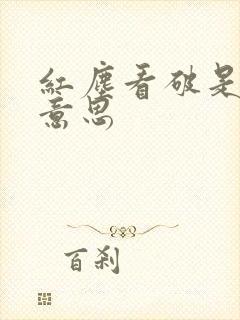 紅塵看破是
意思
百刹